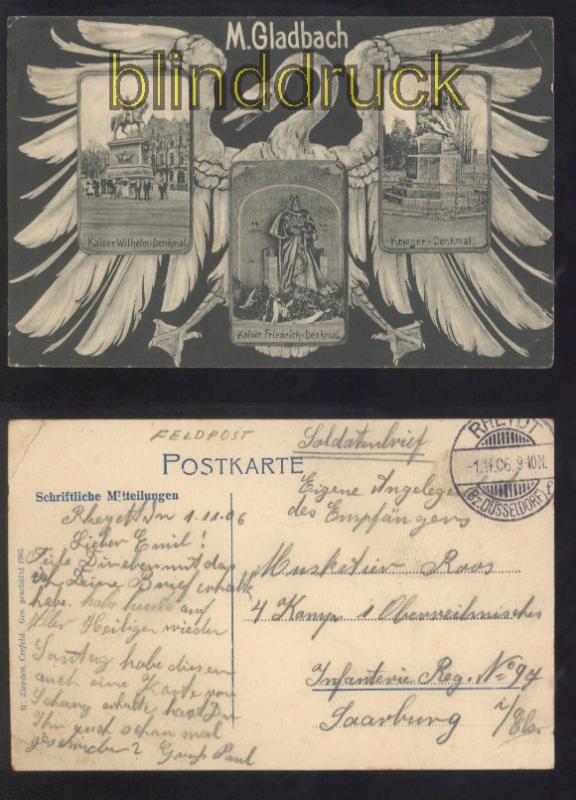 M. Gladbach
blinddruck
Kaiser Wilhelm-Denkmal.
Krieger-Denkmal.
Kaiser Friedrich-Denkmal.
FELDPOST
Soldatenbrief
POSTKARTE
RHEYDT
-1.11.06. 9-10N.
(Bz. DÜSSELDORF) f
Schriftliche Mitteilungen
Eigene
des Empfängers
Rheydt Dn 1.11.06
Lieber Emil!
Teile Dir eben mit das
ich Deine Brief erhalte
habe. habe heute auf
Aller Heiligen wieder
Sontag habe diesen
auch eine Karte von
Schang erhalte hast Du
Ihn auch schon mal
geschrieben? Gruß Paul
Musketier Roos
4 Komp 1 Oberrheinisches
Infanterie Reg. No 97
Saarburg i/Els.
W. Zierden, Crefeld. Ges. geschützt 1905